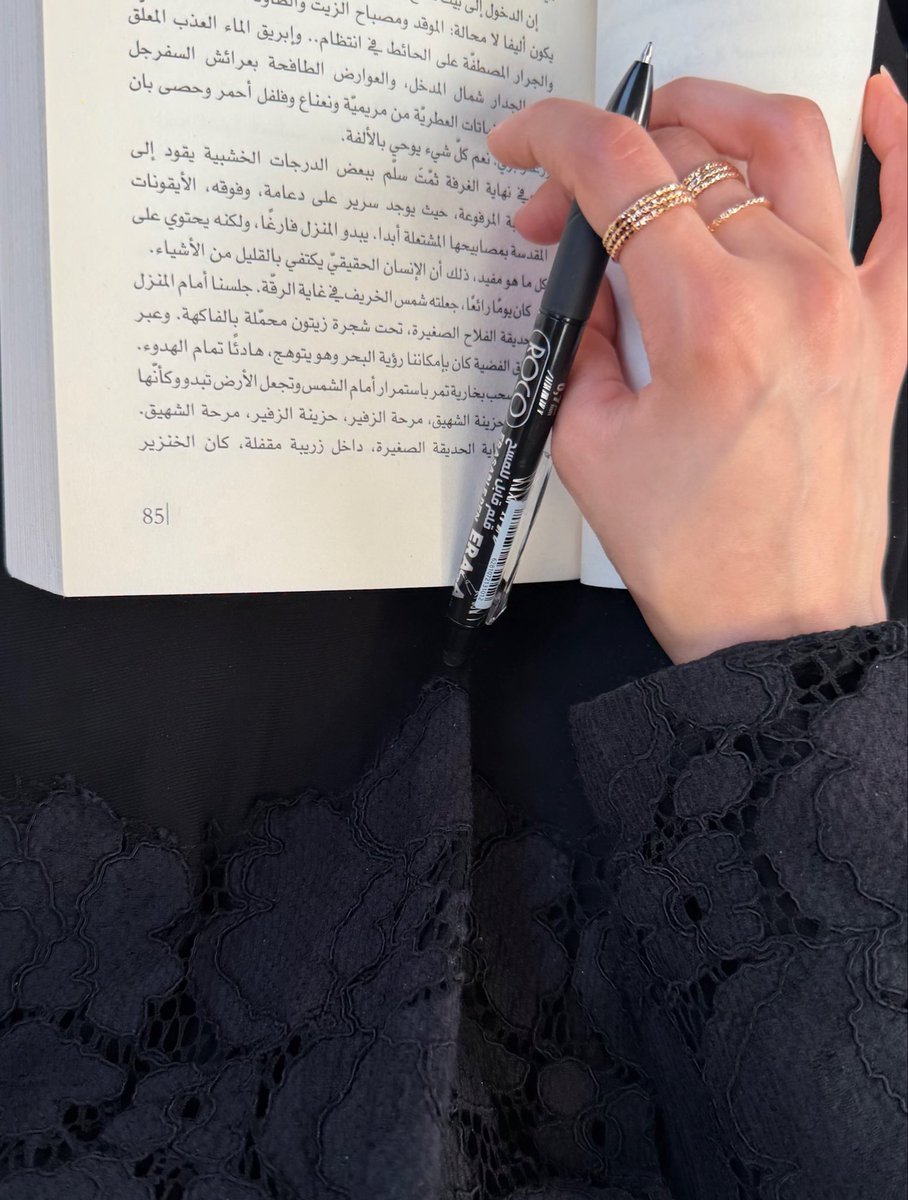 إن الدخول إلى بيت
يكون أليفا لا محالة: الموقد ومصباح الزيت
والجرار المصطفّة على الحائط في انتظام.. وإبريق الماء العذب المعلق
الجدار شمال المدخل، والعوارض الطافحة بعرائش السفرجل
العطريّة من مريميّة ونعناع وفلفل أحمر وحصى بان
نعم كلّ شيء يوحي بالألفة.
في نهاية الغرفة ثمّت سلّم ببعض الدرجات الخشبية يقود إلى
المرفوعة، حيث يوجد سرير على دعامة. وفوقه، الأيقونات
المقدسة بمصابيحها المشتعلة أبدا. يبدو المنزل فارغًا، ولكنه يحتوي على
كل ما هو مفيد، ذلك أن الإنسان الحقيقيّ يكتفي بالقليل من الأشياء.
كان يومًا رائعًا، جعلته شمس الخريف في غاية الرقّة. جلسنا أمام المنزل
حديقة الفلاح الصغيرة، تحت شجرة زيتون محمّلة بالفاكهة. وعبر
الفضية كان بإمكاننا رؤية البحر وهو يتوهج، هادئًا تمام الهدوء.
سحب بخارية تمر باستمرار أمام الشمس وتجعل الأرض تبدو وكأنّها
حزينة الشهيق، مرحة الزفير، حزينة الزفير، مرحة الشهيق.
الحديقة الصغيرة، داخل زريبة مقفلة، كان الخنزير
85
ROCO
قلم قابل للمسح
ERASABLE PEN